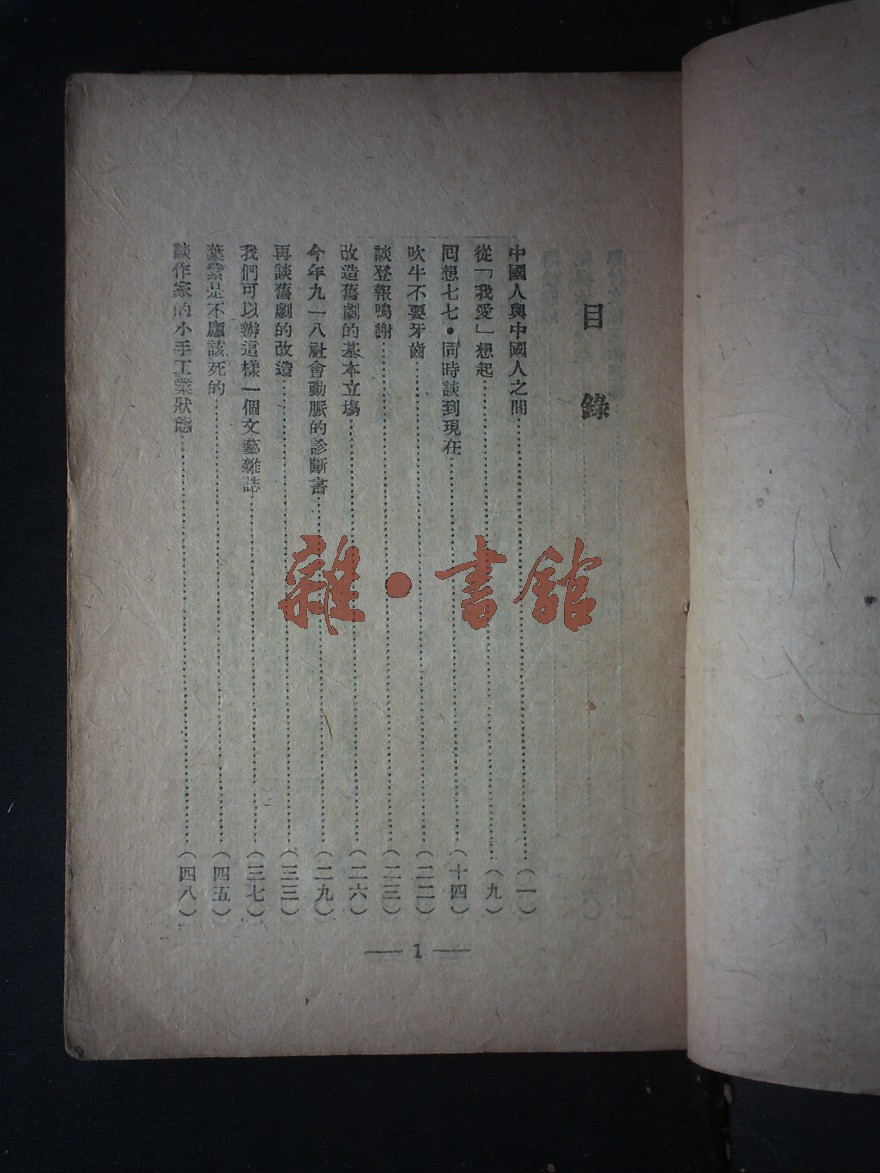 目錄
中國人與中國人之間……(一)
從「我愛」想起……(九)
回想七七·同時談到現在……(十四)
吹牛不要牙齒……(二二)
談登報鳴謝……(二三)
改造舊劇的基本立場……(二六)
今年九一八社會動脈的診斷書……(二九)
再談舊劇的改造……(三三)
我們可以辦這樣一個文藝雜誌……(三七)
葉紫是不應該死的……(四五)
談作家的小手工業狀態……(四八)
— 1 —
雜·書館